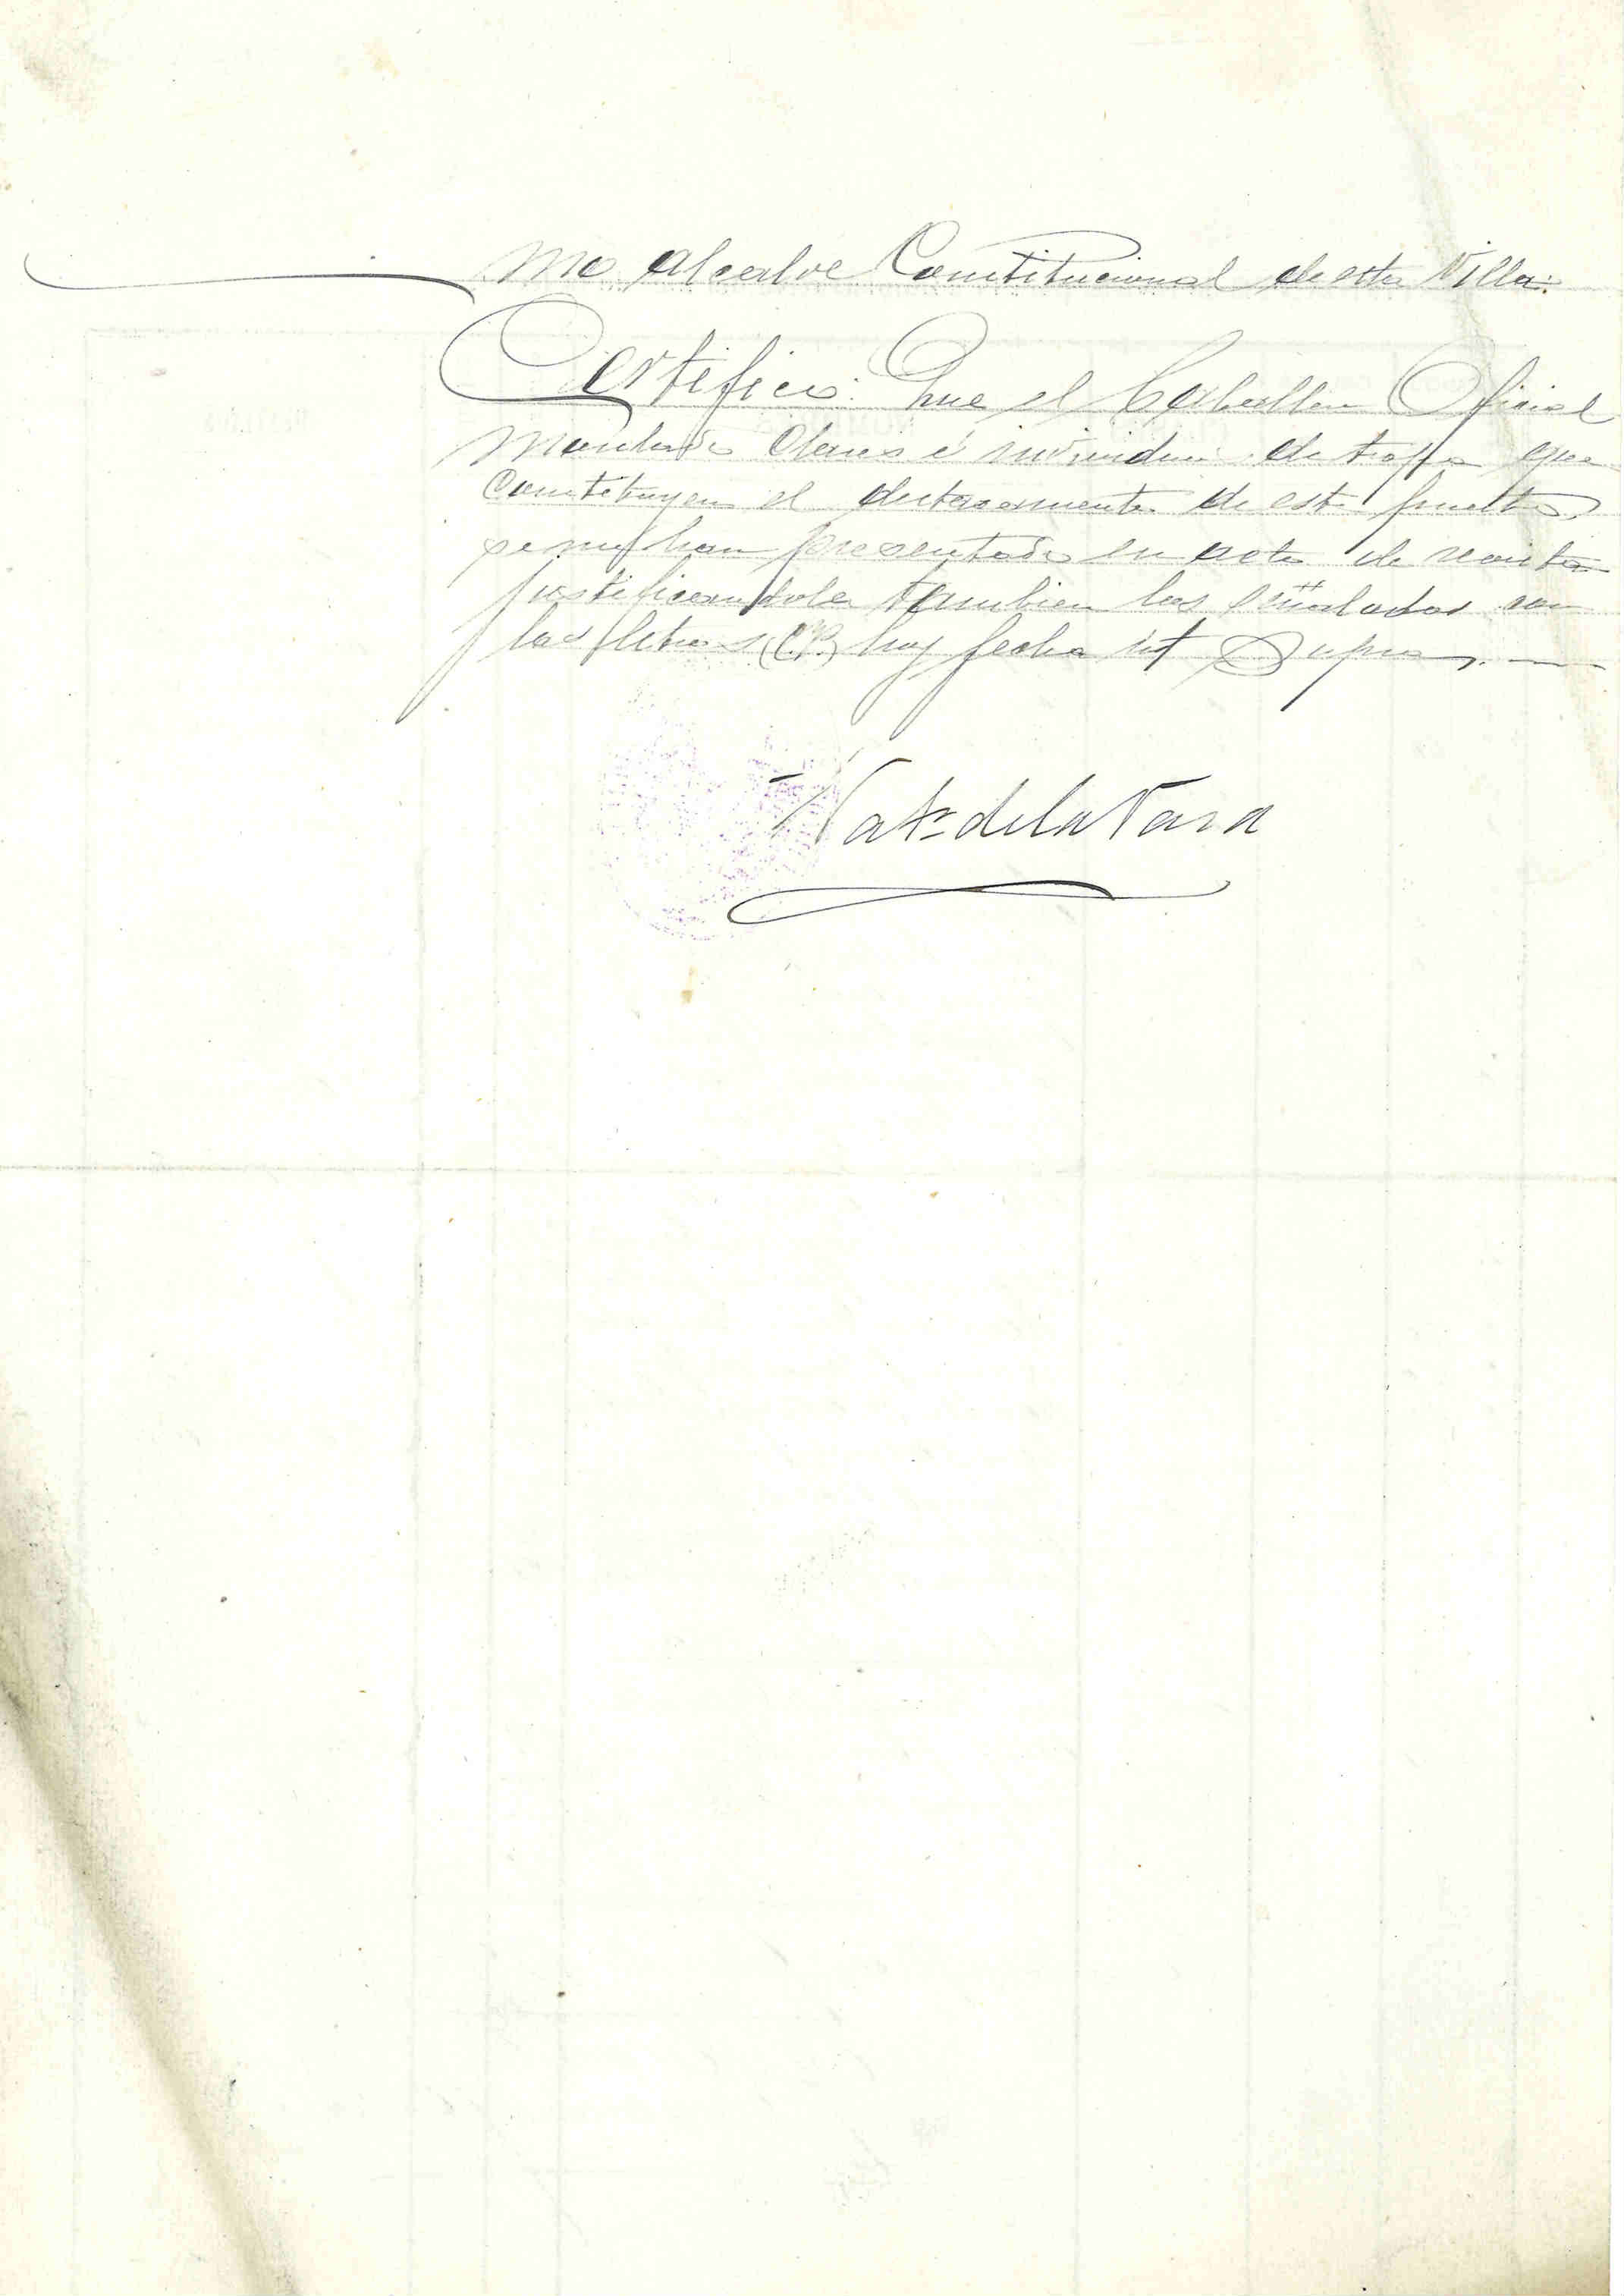 mo Alcalde Constitucional de esta Villa:
Certifico: Que el Caballero Oficial
Clases é individuos de tropa que
Constituyen el destacamento de este puesto
se me han presentado en acto de revista
justificandola tambien los señalados con
las letras (C.P.) hoy fecha ut Supra.
de la Vara